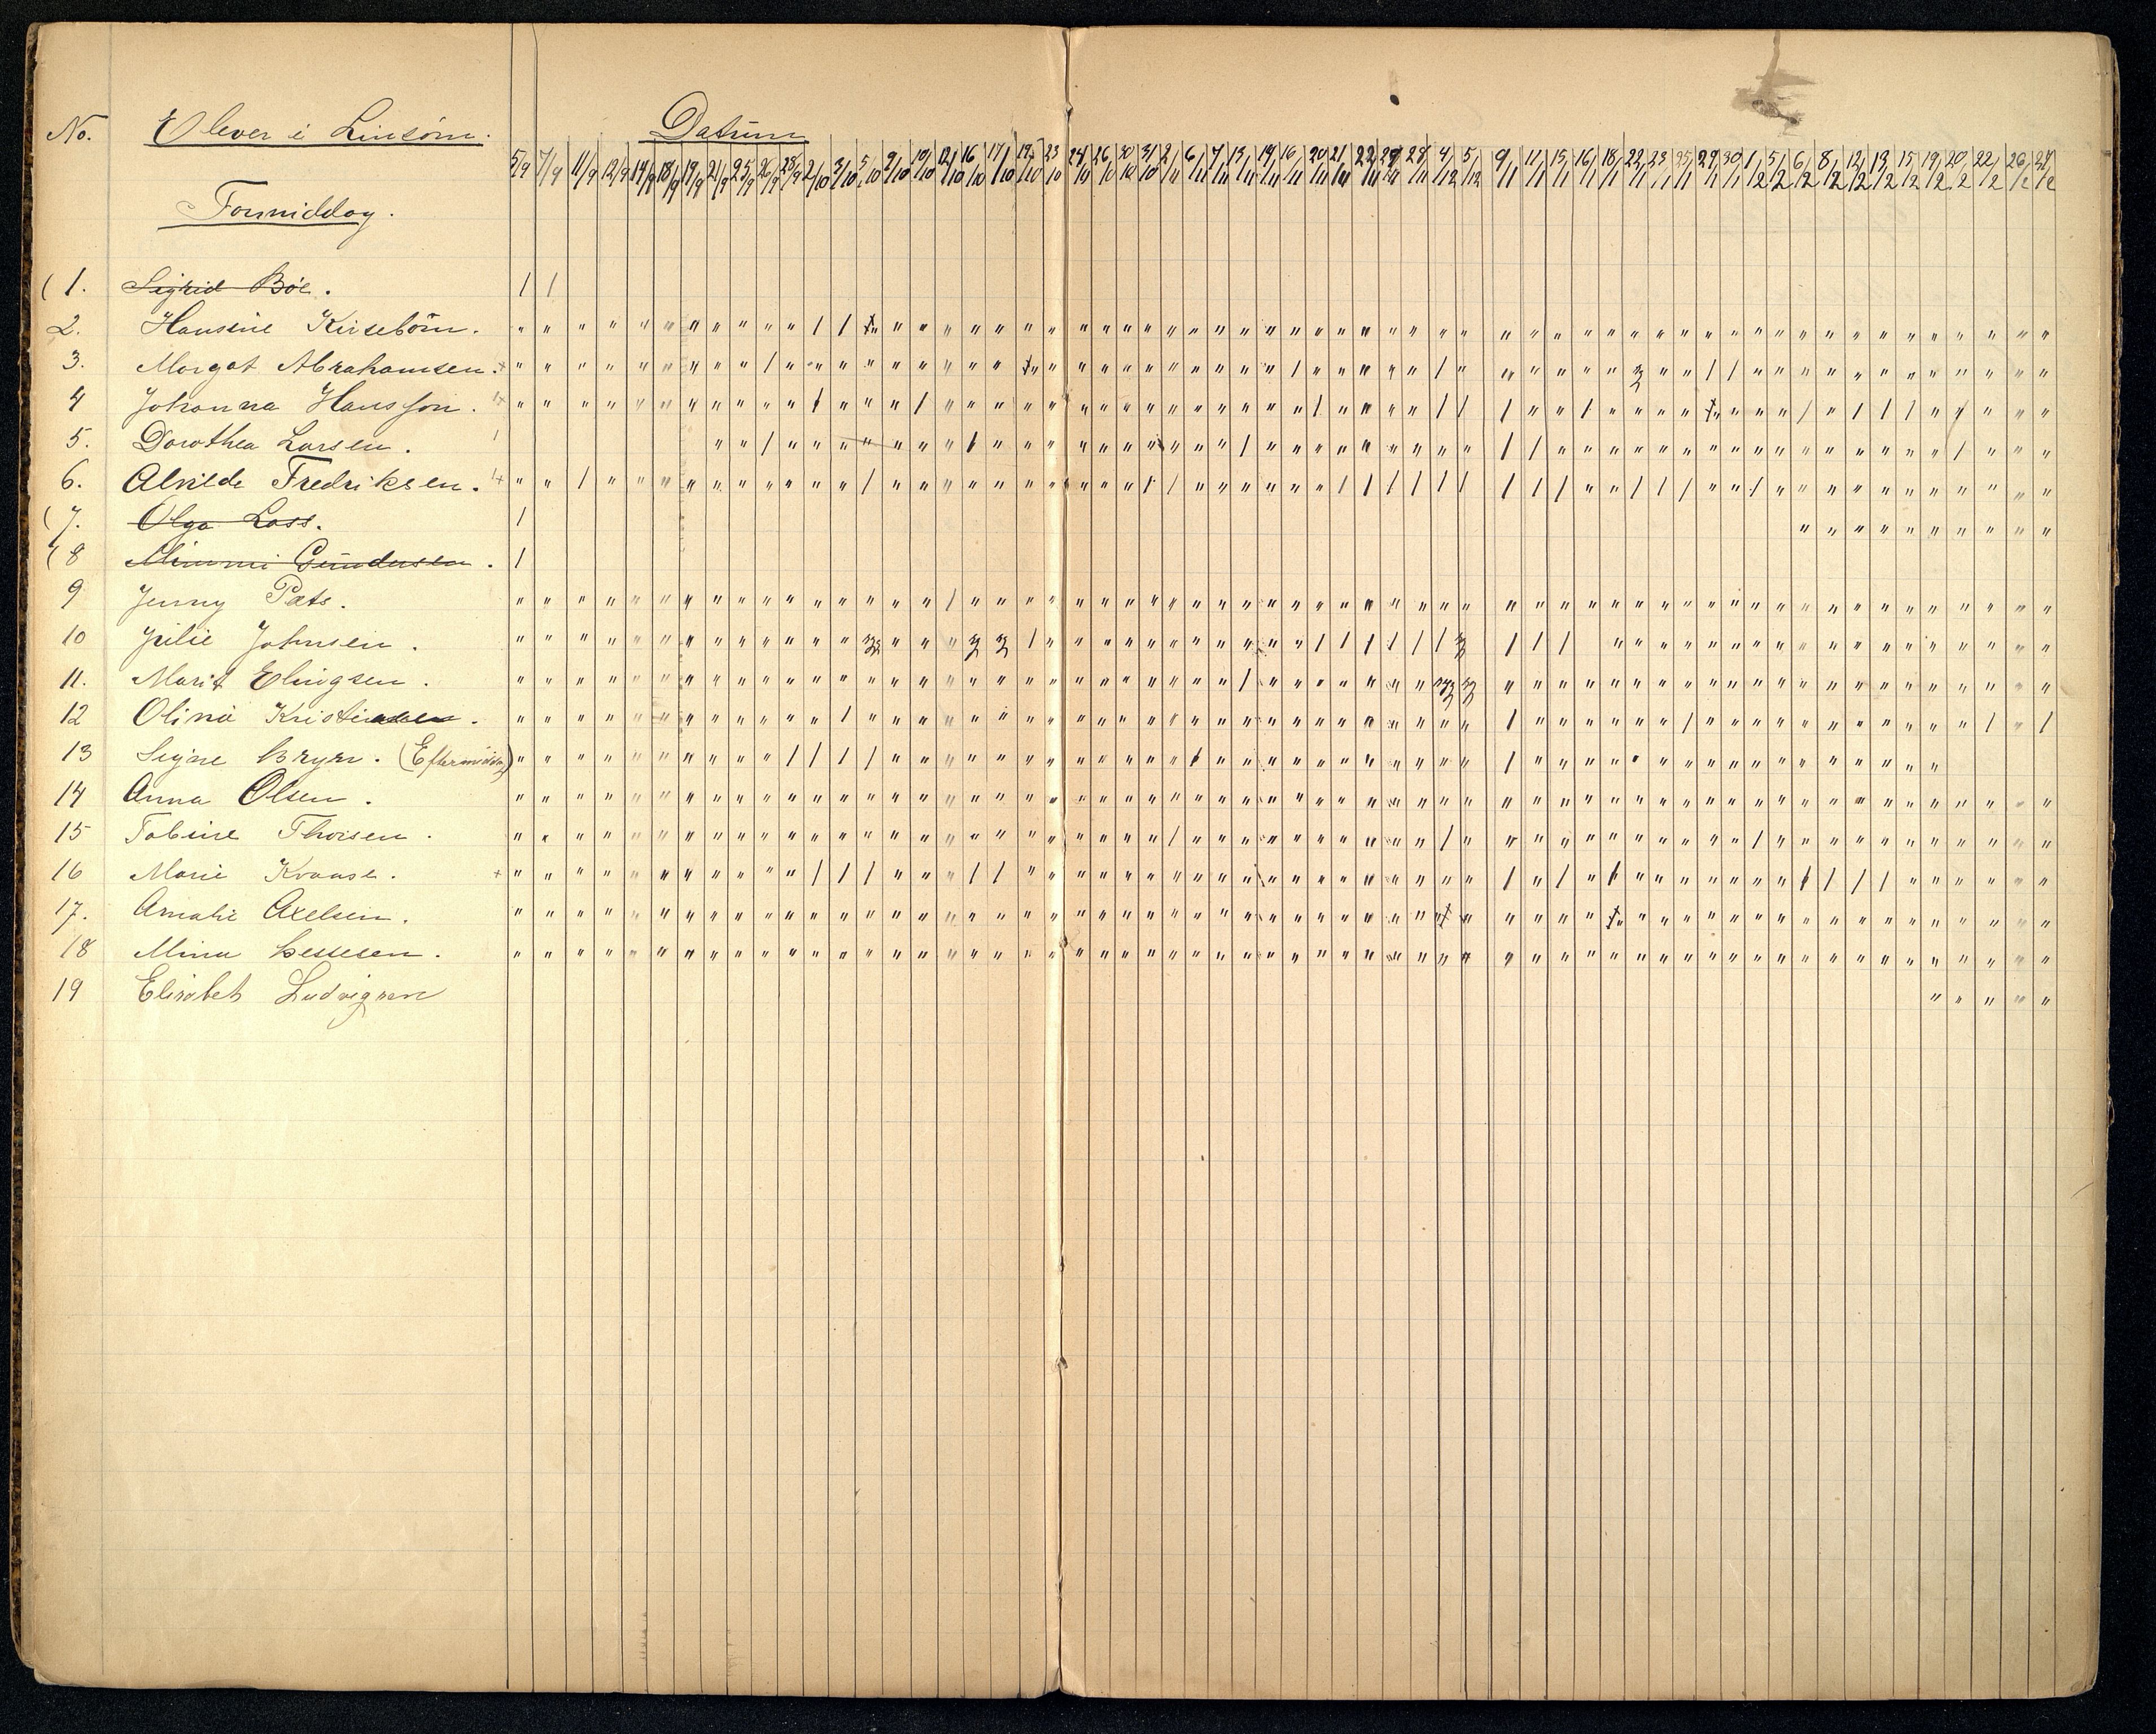 No. Elever i Linsöm. Datum
5/9 7/9 11/9 12/9 14/9 18/9 19/9 21/9 25/9 26/9 28/9 2/10 3/10 5/10 9/10 10/10 12/10 16/10 17/10 19/10 23/10 24/10 26/10 30/10 31/10 2/11 6/11 7/11 13/11 14/11 16/11 20/11 21/11 22/11 27/11 28/11 4/12 5/12 9/1 11/1 15/1 16/1 18/1 22/1 23/1 25/1 29/1 30/1 1/2 5/2 6/2 8/2 12/2 13/2 15/2 19/2 20/2 22/2 26/2 27/2
Formiddag.
1. Sigrid Böe.
2. Hansine Kirsebom.
3. Margot Abrahamsen.
4 Johanna Hansson.
5. Dorothea Larsen.
6. Alvilde Fredriksen.
7. Olga Lass.
8 Mimmi Gundersen.
9 Jenny Pats.
10 Julie Johnsen.
11. Marit Elingsen.
12 Olina Kristiansen.
13 Signe Bryn. (Eftermiddag)
14 Anna Olsen.
15 Tobine Thorsen.
16 Marie Kraase.
17. Amalie Axelsen.
18 Mina
19 Elisabet Ludvigsen